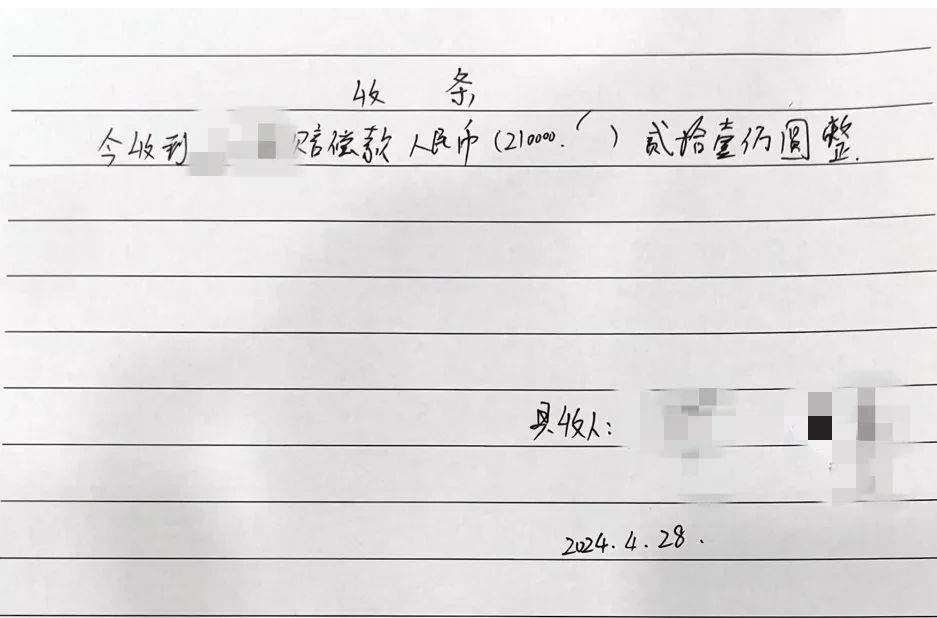 收 条
今收到 赔偿款人民币(210000.)贰拾壹仟圆整.
具收人:
2024.4.28.